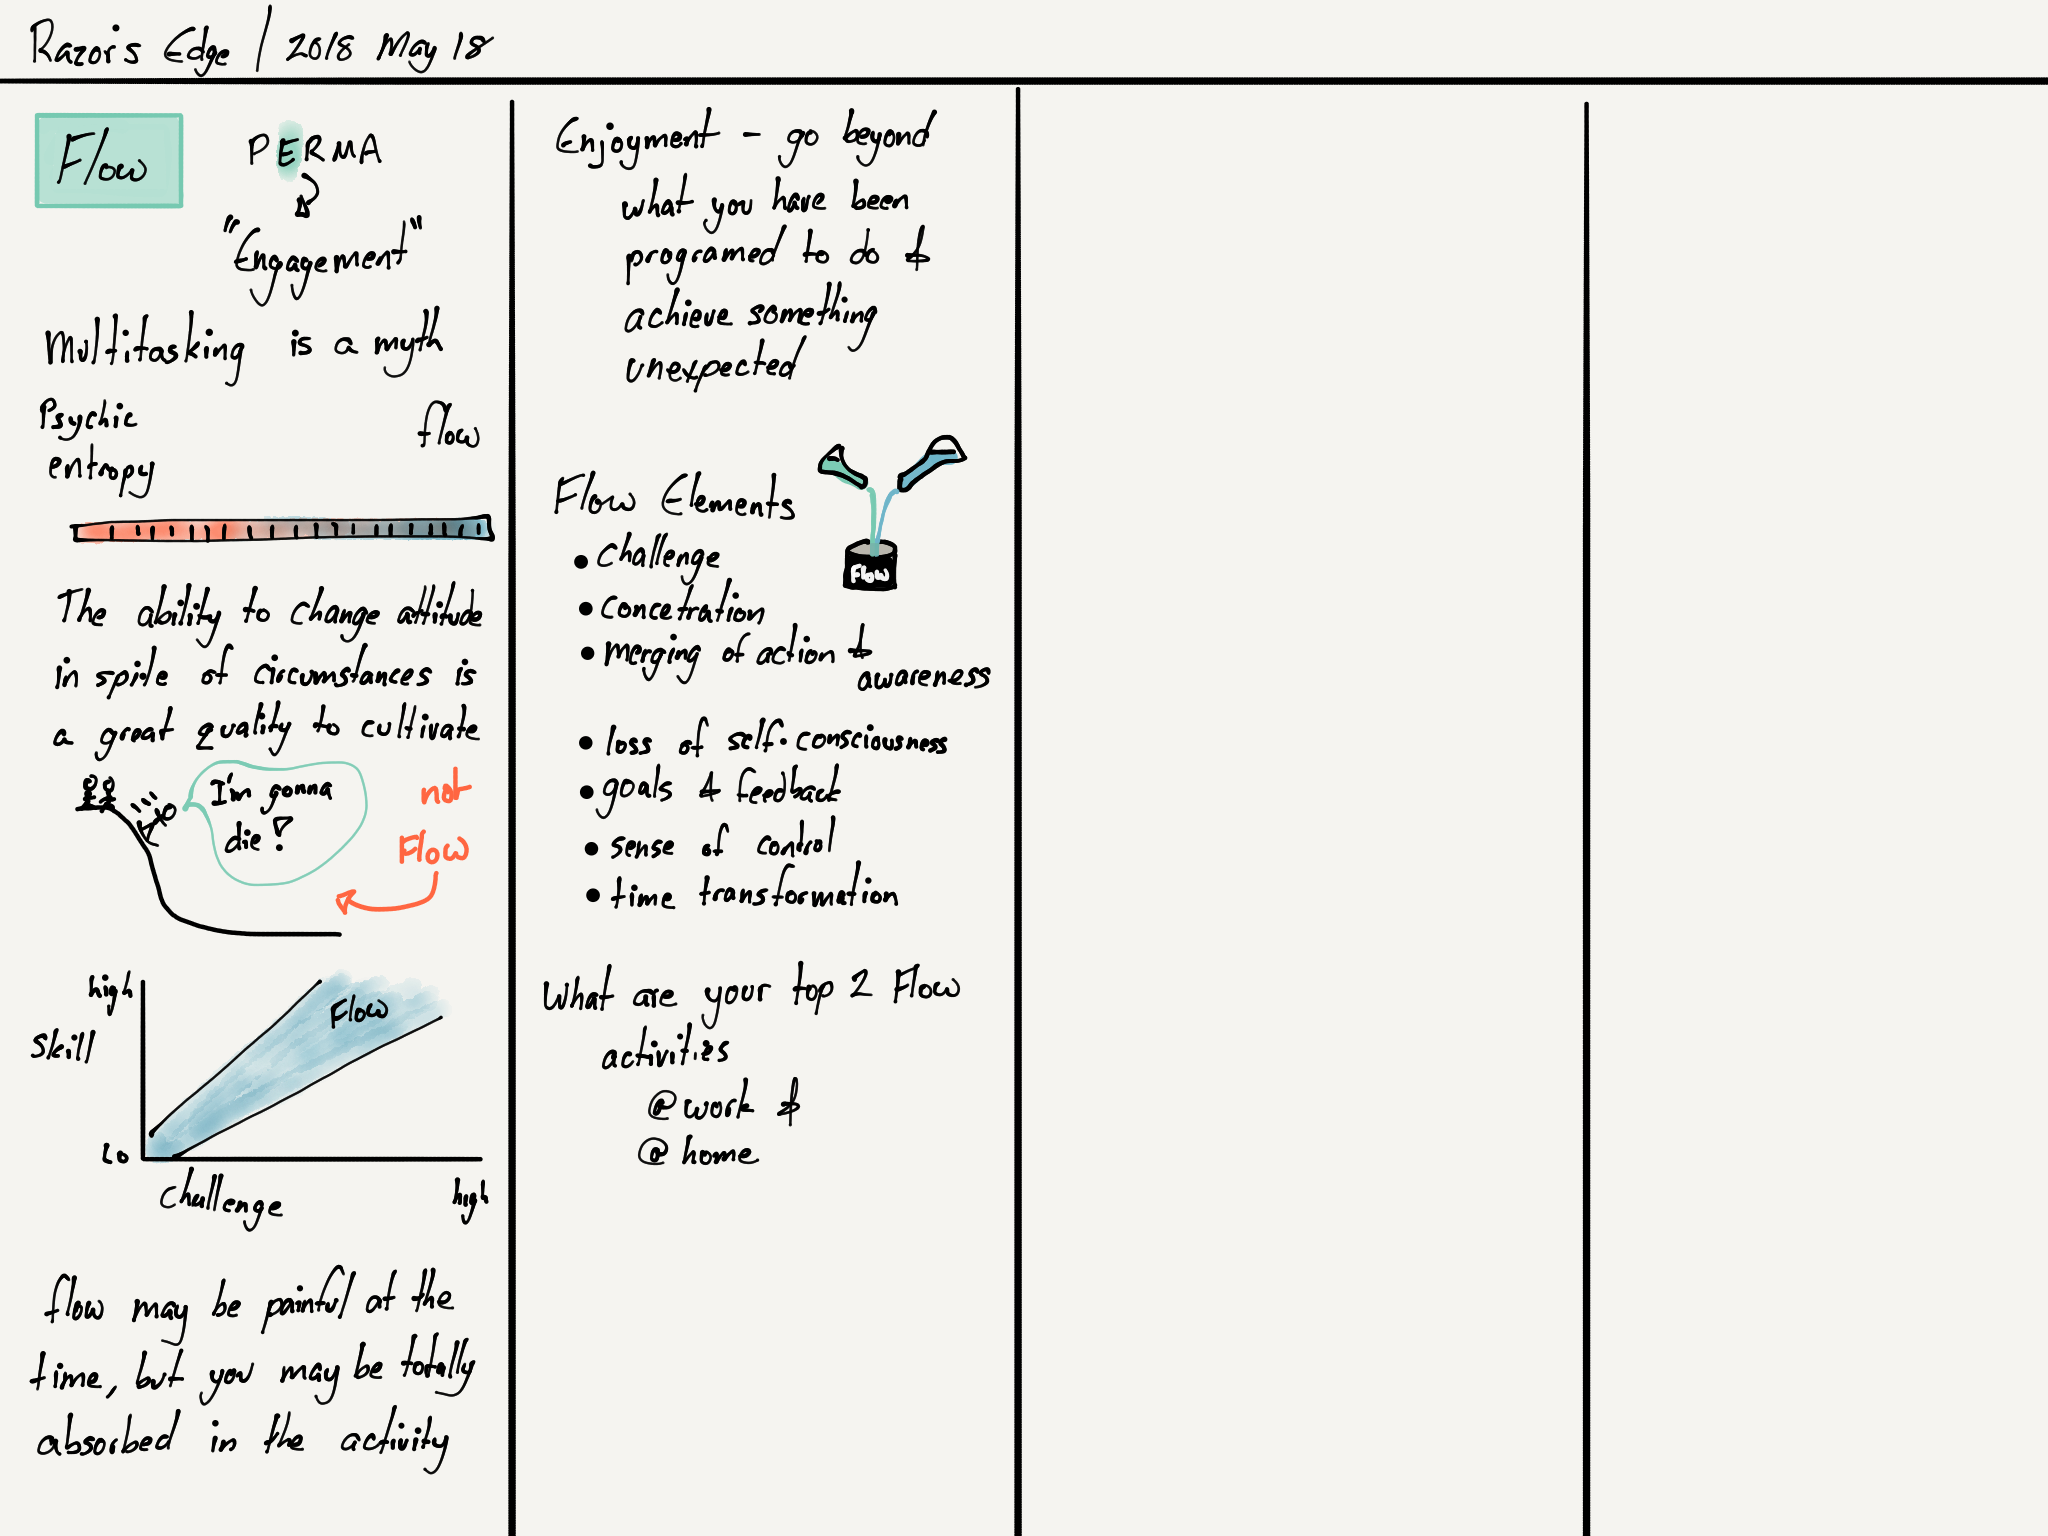 Razor's Edge / 2018 May 18
Flow
PERMA
"Engagement"
Multitasking is a myth
Psychic
entropy
flow
The ability to change attitude
in spite of circumstances is
a great quality to cultivate
I'm gonna
die!
not
Flow
high
Skill
Lo
Flow
Challenge
high
flow may be painful at the
time, but you may be totally
absorbed in the activity
Enjoyment - go beyond
what you have been
programed to do &
achieve something
unexpected
Flow Elements
Flow
• challenge
• concetration
• merging of action &
awareness
• loss of self-consciousness
• goals & feedback
• sense of control
• time transformation
What are your top 2 Flow
activities
@ work &
@ home